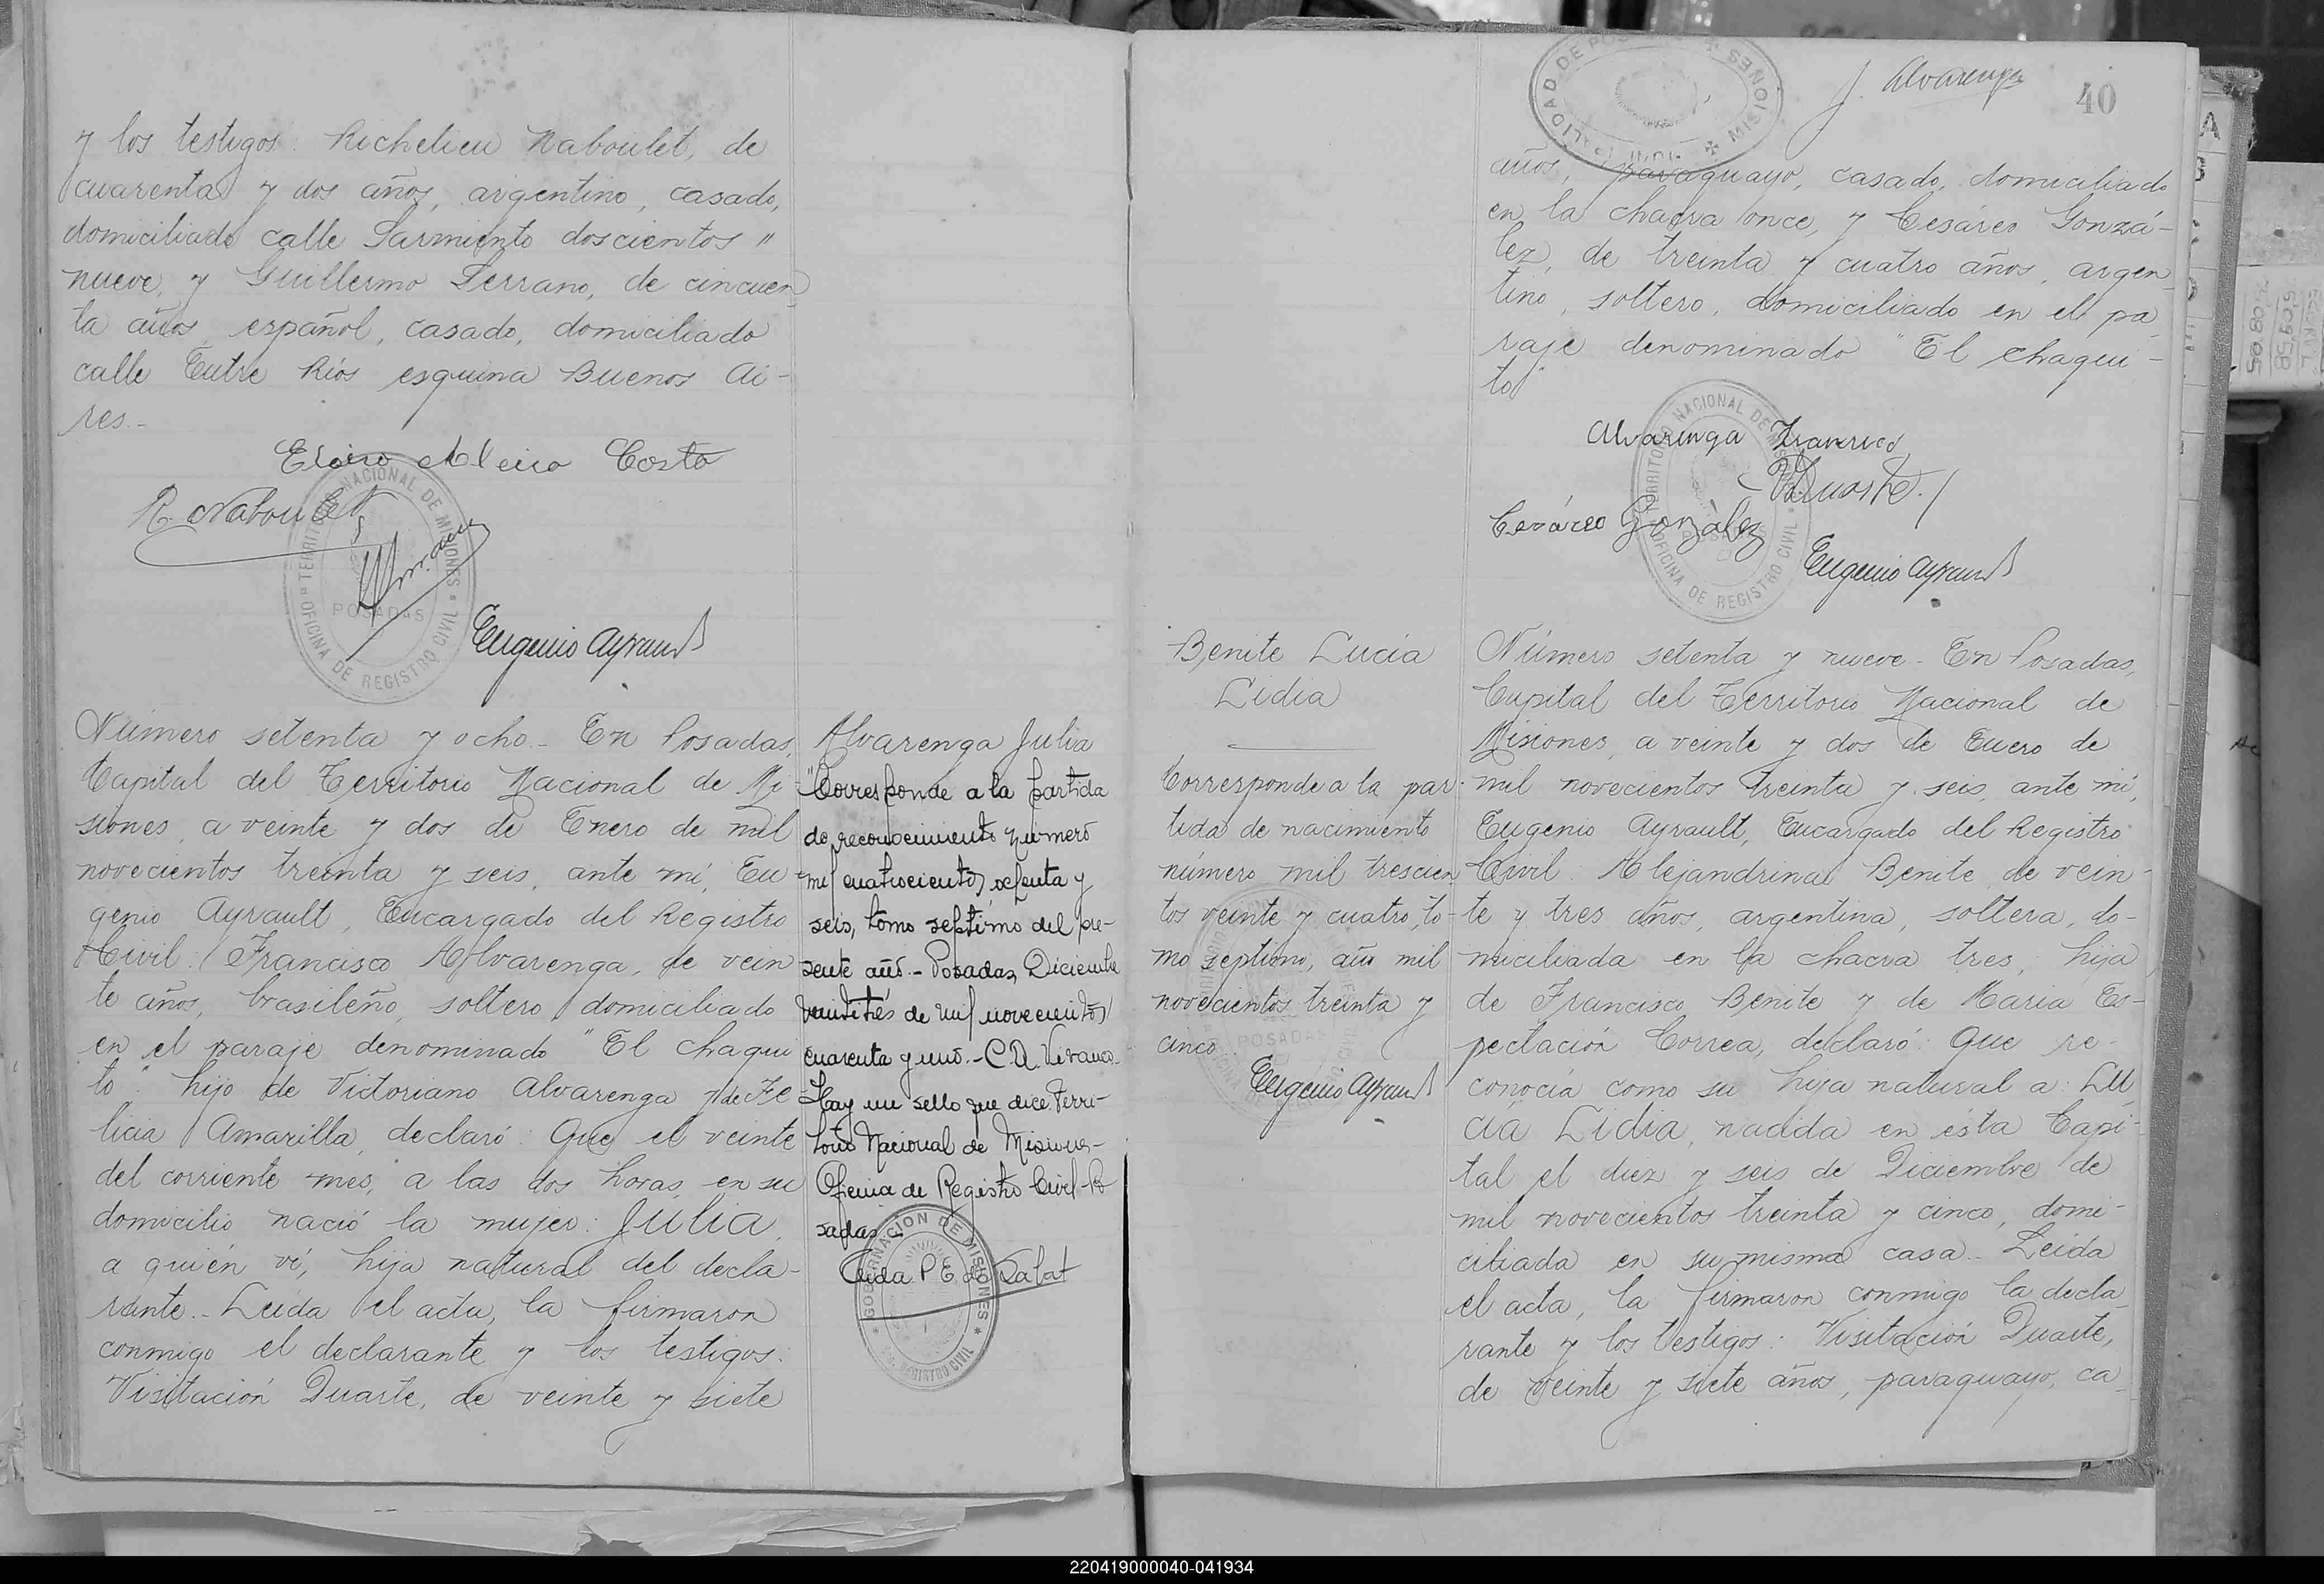 y los testigos: Richelieu Naboulet, de
cuarenta y dos años, argentino, casado,
domiciliado calle Sarmiento doscientos "
nueve, y Guillermo Serrano, de cincuen
ta años, español, casado, domiciliado
calle Entre Ríos esquina Buenos Ai-
res.-
Costa
R. Naboulet
TERRITORIO NACIONAL DE MISIONES
POSADAS
OFICINA DE REGISTRO CIVIL
Eugenio Ayrault
Número setenta y ocho.- En Posadas,
Capital del Territorio Nacional de Mi-
siones, a veinte y dos de Enero de mil
novecientos treinta y seis, ante mí, Eu-
genio Ayrault, Encargado del Registro
Civil: Francisco Alvarenga, de vein
te años, brasileño, soltero, domiciliado
en el paraje denominado "El chaqui
to", hijo de Victoriano Alvarenga y de Fe
licia Amarilla, declaró: Que el veinte
del corriente mes, a las dos horas, en su
domicilio nació la mujer: Julia,
a quién ví, hija natural del decla-
rante.- Leida el acta, la firmaron
conmigo el declarante y los testigos:
Visitación Duarte, de veinte y siete
Alvarenga Julia
"Corresponde a la partida
de reconocimiento número
mil cuatrocientos setenta y
seis, tomo septimo del pre-
sente año.- Posadas, Diciembre
veintitrés de mil novecientos
cuarenta y uno.- C.A. Vivanco.-
Hay un sello que dice: Terri-
torio Nacional de Misiones-
Oficina de Registro Civil-Po
sadas.-
GOBERNACION DE MISIONES
REGISTRO CIVIL
J. Alvarenga
40
MUNICIPALIDAD DE POSADAS
MISIONES
años, paraguayo, casado, domiciliado
en la chacra once, y Cesáreo Gonzá-
lez, de treinta y cuatro años, argen
tino, soltero, domiciliado en el pa
raje denominado "El chaqui-
to"
Alvarenga Francisco
VDuarte.
Cesáreo González
TERRITORIO NACIONAL DE MISIONES
POSADAS
OFICINA DE REGISTRO CIVIL
Eugenio Ayrault
Benite Lucía
Lidia
Corresponde a la par-
tida de nacimiento
número mil trescien
tos veinte y cuatro, to-
mo septimo, año mil
novecientos treinta y
cinco
POSADAS
Eugenio Ayrault
Número setenta y nueve.- En Posadas,
Capital del Territorio Nacional de
Misiones, a veinte y dos de Enero de
mil novecientos treinta y seis, ante mí,
Eugenio Ayrault, Encargado del Registro
Civil: Alejandrina Benite, de vein-
te y tres años, argentina, soltera, do-
miciliada en la chacra tres, hija
de Francisco Benite y de Maria Es-
pectación Correa, declaró: Que re-
conocía como su hija natural a: Lu
cía Lidia, nacida en ésta Capi-
tal el diez y seis de Diciembre de
mil novecientos treinta y cinco, domi-
ciliada en su misma casa.- Leida
el acta, la firmaron conmigo la decla
rante y los testigos: Visitación Duarte,
de veinte y siete años, paraguayo, ca-
220419000040-041934